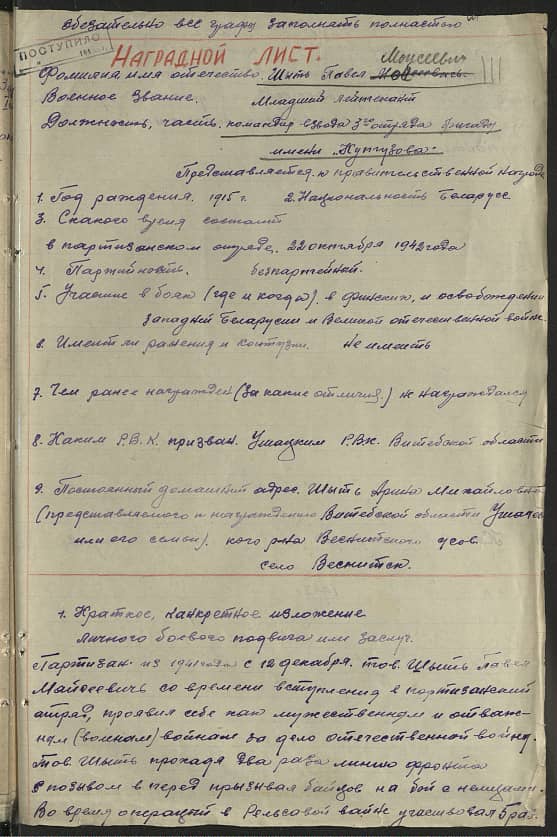 обезательно все графы заполнять полностью
ПОСТУПИЛО
НАГРАДНОЙ ЛИСТ.
Моисеевич
Фомилия имя отечество. Шыть Павел
Военное звание. Младший лейтенант
Должность, часть. командир взвода 3го отряда бригады
имени "Кутузова"
Представляется к правительственной награде
1. Год рождения. 1915 г. 2. Национальность Беларусс
3. Скакого время состоит
в партизанском отряде. 22 октября 1942 года
4. Партийность. безпартейный.
5. Участие в боях (где и когда). в финских, и освобождении
Западней Беларусии и Великой отечественной войне
6. Имеит ли ранения и контузии. Не имеить
7. Чем ранее награжден (за какие отличия.) не награждался
8. Каким Р.В.К. призван. Ушацким РВК. Витебской области
9. Постоенный домашний адрес. Шыть Арина Михайловна
(представляемого к награждению Витебской области Ушач
или его семьи). кого р-на Веснитского усов.
село Веснитск.
1. Краткое, канкретное изложение
личного боевого подвига или заслуг.
Партизан из 1941 года с 12 декабря. тов. Шыть Павел
Майсеевичь со времени вступления в партизанский
атряд, проявил себе как мужественным и отваж-
ным (воином) войном за дело отечественной войны.
Тов. Шыть проходя два раза линию фронта
с позывом в перед прызывая байцов на бой с немцами.
Во время операций в Рельсовай войне участвовал 5 раз.